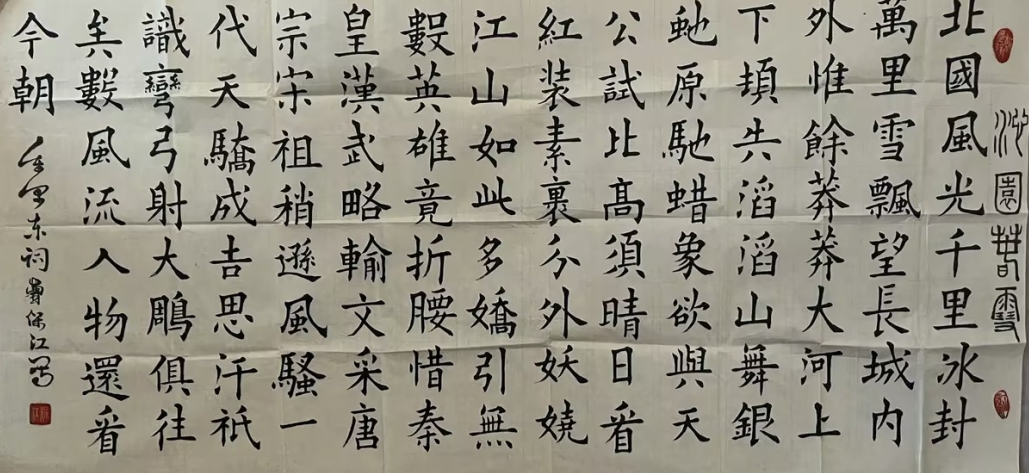 沁園春雪
北國風光千里冰封
萬里雪飄望長城内
外惟餘莽莽大河上
下頓失滔滔山舞銀
虵原馳蜡象欲與天
公試比髙須晴日看
紅装素裹分外妖嬈
江山如此多嬌引無
數英雄竟折腰惜秦
皇漢武略輸文采唐
宗宋祖稍遜風騷一
代天驕成吉思汗衹
識彎弓射大鵰俱往
矣數風流人物還看
今朝
毛泽东词 保江写